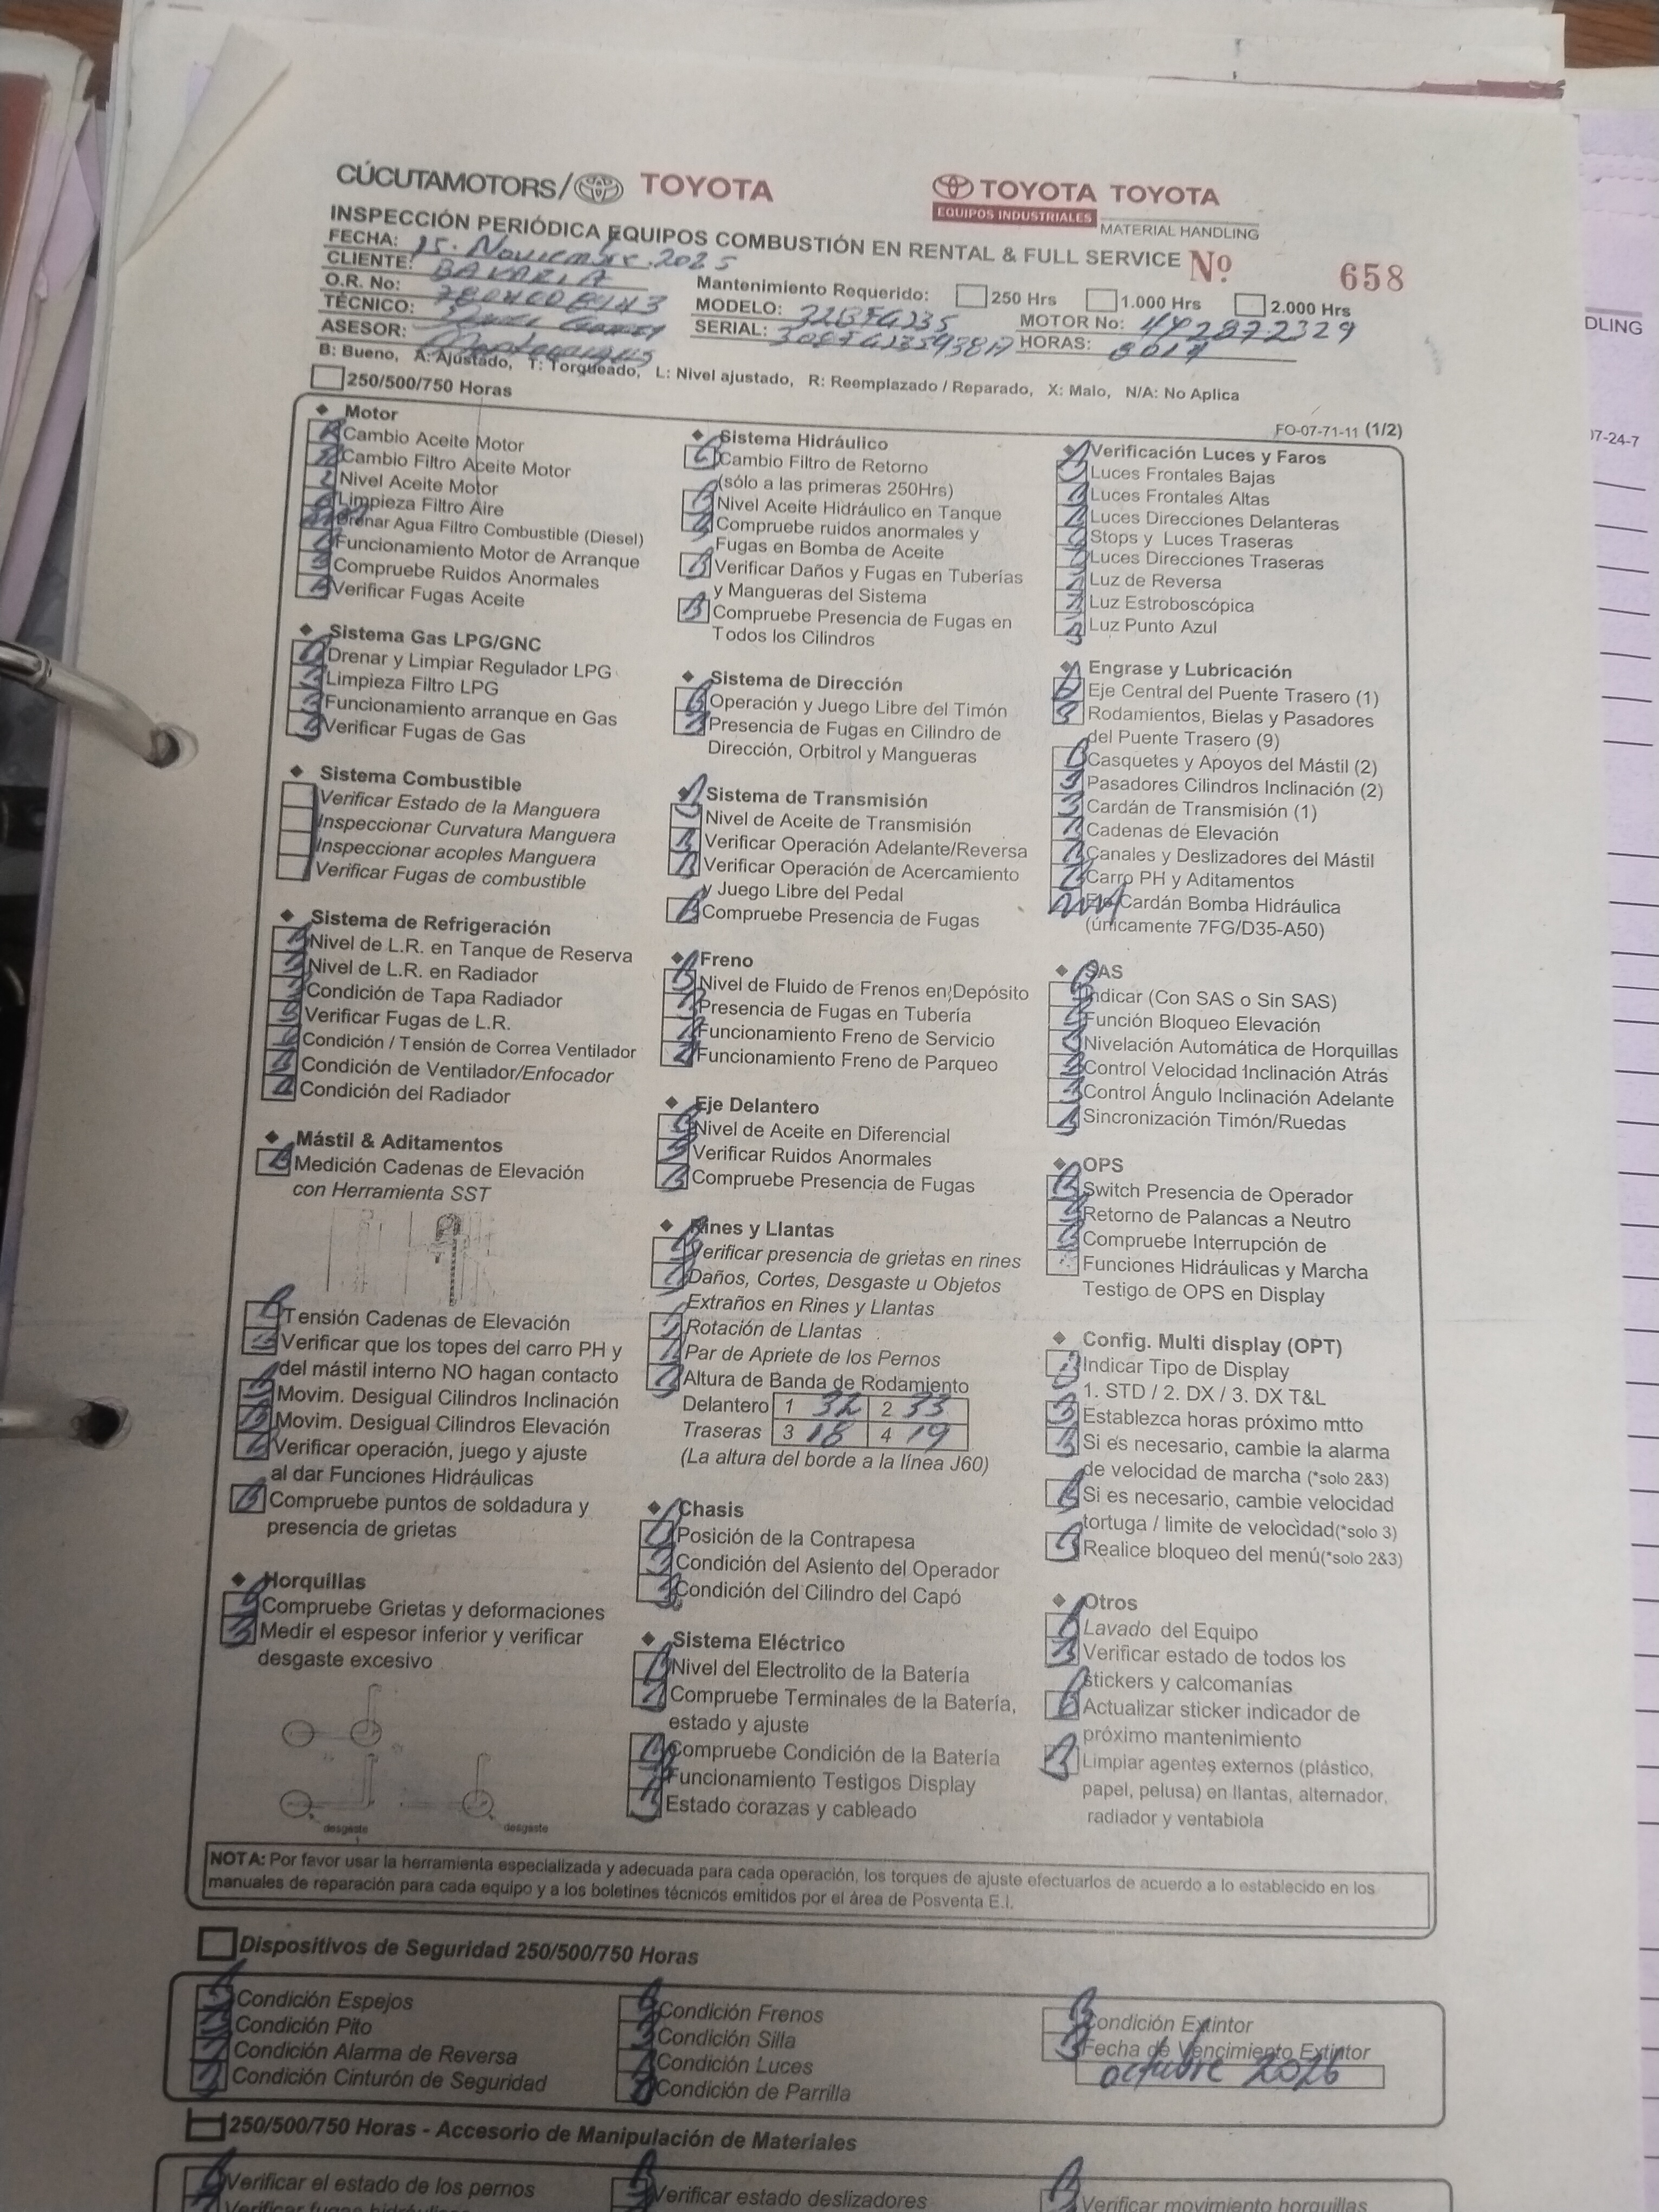 CÚCUTAMOTORS/ TOYOTA
TOYOTA TOYOTA
EQUIPOS INDUSTRIALES MATERIAL HANDLING
INSPECCIÓN PERIÓDICA EQUIPOS COMBUSTIÓN EN RENTAL & FULL SERVICE Nº 658
FECHA: 15. Noviembre. 2025
CLIENTE: BAVARIA
O.R. No:
Mantenimiento Requerido: 250 Hrs 1.000 Hrs 2.000 Hrs
TÉCNICO:
MODELO:
MOTOR No:
ASESOR:
SERIAL:
HORAS:
B: Bueno, A: Ajustado, T: Torqueado, L: Nivel ajustado, R: Reemplazado / Reparado, X: Malo, N/A: No Aplica
250/500/750 Horas
FO-07-71-11 (1/2)
Motor
Cambio Aceite Motor
Cambio Filtro Aceite Motor
Nivel Aceite Motor
Limpieza Filtro Aire
Drenar Agua Filtro Combustible (Diesel)
Funcionamiento Motor de Arranque
Compruebe Ruidos Anormales
Verificar Fugas Aceite
Sistema Gas LPG/GNC
Drenar y Limpiar Regulador LPG
Limpieza Filtro LPG
Funcionamiento arranque en Gas
Verificar Fugas de Gas
Sistema Combustible
Verificar Estado de la Manguera
Inspeccionar Curvatura Manguera
Inspeccionar acoples Manguera
Verificar Fugas de combustible
Sistema de Refrigeración
Nivel de L.R. en Tanque de Reserva
Nivel de L.R. en Radiador
Condición de Tapa Radiador
Verificar Fugas de L.R.
Condición / Tensión de Correa Ventilador
Condición de Ventilador/Enfocador
Condición del Radiador
Mástil & Aditamentos
B Medición Cadenas de Elevación
con Herramienta SST
Tensión Cadenas de Elevación
Verificar que los topes del carro PH y
del mástil interno NO hagan contacto
Movim. Desigual Cilindros Inclinación
Movim. Desigual Cilindros Elevación
Verificar operación, juego y ajuste
al dar Funciones Hidráulicas
B Compruebe puntos de soldadura y
presencia de grietas
Horquillas
Compruebe Grietas y deformaciones
Medir el espesor inferior y verificar
desgaste excesivo
desgaste desgaste
Sistema Hidráulico
Cambio Filtro de Retorno
(sólo a las primeras 250Hrs)
Nivel Aceite Hidráulico en Tanque
Compruebe ruidos anormales y
Fugas en Bomba de Aceite
B Verificar Daños y Fugas en Tuberías
y Mangueras del Sistema
B Compruebe Presencia de Fugas en
Todos los Cilindros
Sistema de Dirección
Operación y Juego Libre del Timón
Presencia de Fugas en Cilindro de
Dirección, Orbitrol y Mangueras
Sistema de Transmisión
Nivel de Aceite de Transmisión
Verificar Operación Adelante/Reversa
Verificar Operación de Acercamiento
y Juego Libre del Pedal
B Compruebe Presencia de Fugas
Freno
Nivel de Fluido de Frenos en Depósito
Presencia de Fugas en Tubería
Funcionamiento Freno de Servicio
Funcionamiento Freno de Parqueo
Eje Delantero
Nivel de Aceite en Diferencial
Verificar Ruidos Anormales
Compruebe Presencia de Fugas
Rines y Llantas
Verificar presencia de grietas en rines
Daños, Cortes, Desgaste u Objetos
Extraños en Rines y Llantas
Rotación de Llantas
Par de Apriete de los Pernos
Altura de Banda de Rodamiento
Delantero 1 32 2 33
Traseras 3 18 4 19
(La altura del borde a la línea J60)
Chasis
Posición de la Contrapesa
Condición del Asiento del Operador
Condición del Cilindro del Capó
Sistema Eléctrico
Nivel del Electrolito de la Batería
Compruebe Terminales de la Batería,
estado y ajuste
Compruebe Condición de la Batería
Funcionamiento Testigos Display
Estado corazas y cableado
Verificación Luces y Faros
Luces Frontales Bajas
Luces Frontales Altas
Luces Direcciones Delanteras
Stops y Luces Traseras
Luces Direcciones Traseras
Luz de Reversa
Luz Estroboscópica
Luz Punto Azul
Engrase y Lubricación
Eje Central del Puente Trasero (1)
Rodamientos, Bielas y Pasadores
del Puente Trasero (9)
Casquetes y Apoyos del Mástil (2)
Pasadores Cilindros Inclinación (2)
Cardán de Transmisión (1)
Cadenas de Elevación
Canales y Deslizadores del Mástil
Carro PH y Aditamentos
Eje Cardán Bomba Hidráulica
(únicamente 7FG/D35-A50)
SAS
Indicar (Con SAS o Sin SAS)
Función Bloqueo Elevación
Nivelación Automática de Horquillas
Control Velocidad Inclinación Atrás
Control Ángulo Inclinación Adelante
Sincronización Timón/Ruedas
OPS
Switch Presencia de Operador
Retorno de Palancas a Neutro
Compruebe Interrupción de
Funciones Hidráulicas y Marcha
Testigo de OPS en Display
Config. Multi display (OPT)
Indicar Tipo de Display
1. STD / 2. DX / 3. DX T&L
Establezca horas próximo mtto
Si es necesario, cambie la alarma
de velocidad de marcha (*solo 2&3)
Si es necesario, cambie velocidad
tortuga / limite de velocidad(*solo 3)
Realice bloqueo del menú(*solo 2&3)
Otros
Lavado del Equipo
Verificar estado de todos los
stickers y calcomanías
Actualizar sticker indicador de
próximo mantenimiento
Limpiar agentes externos (plástico,
papel, pelusa) en llantas, alternador,
radiador y ventabiola
NOTA: Por favor usar la herramienta especializada y adecuada para cada operación, los torques de ajuste efectuarlos de acuerdo a lo establecido en los
manuales de reparación para cada equipo y a los boletines técnicos emitidos por el área de Posventa E.I.
Dispositivos de Seguridad 250/500/750 Horas
Condición Espejos
Condición Pito
Condición Alarma de Reversa
Condición Cinturón de Seguridad
Condición Frenos
Condición Silla
Condición Luces
Condición de Parrilla
Condición Extintor
Fecha de Vencimiento Extintor
octubre 2026
250/500/750 Horas - Accesorio de Manipulación de Materiales
Verificar el estado de los pernos
Verificar fugas hidráulicas
Verificar estado deslizadores
Verificar movimiento horquillas
DLING
07-24-7